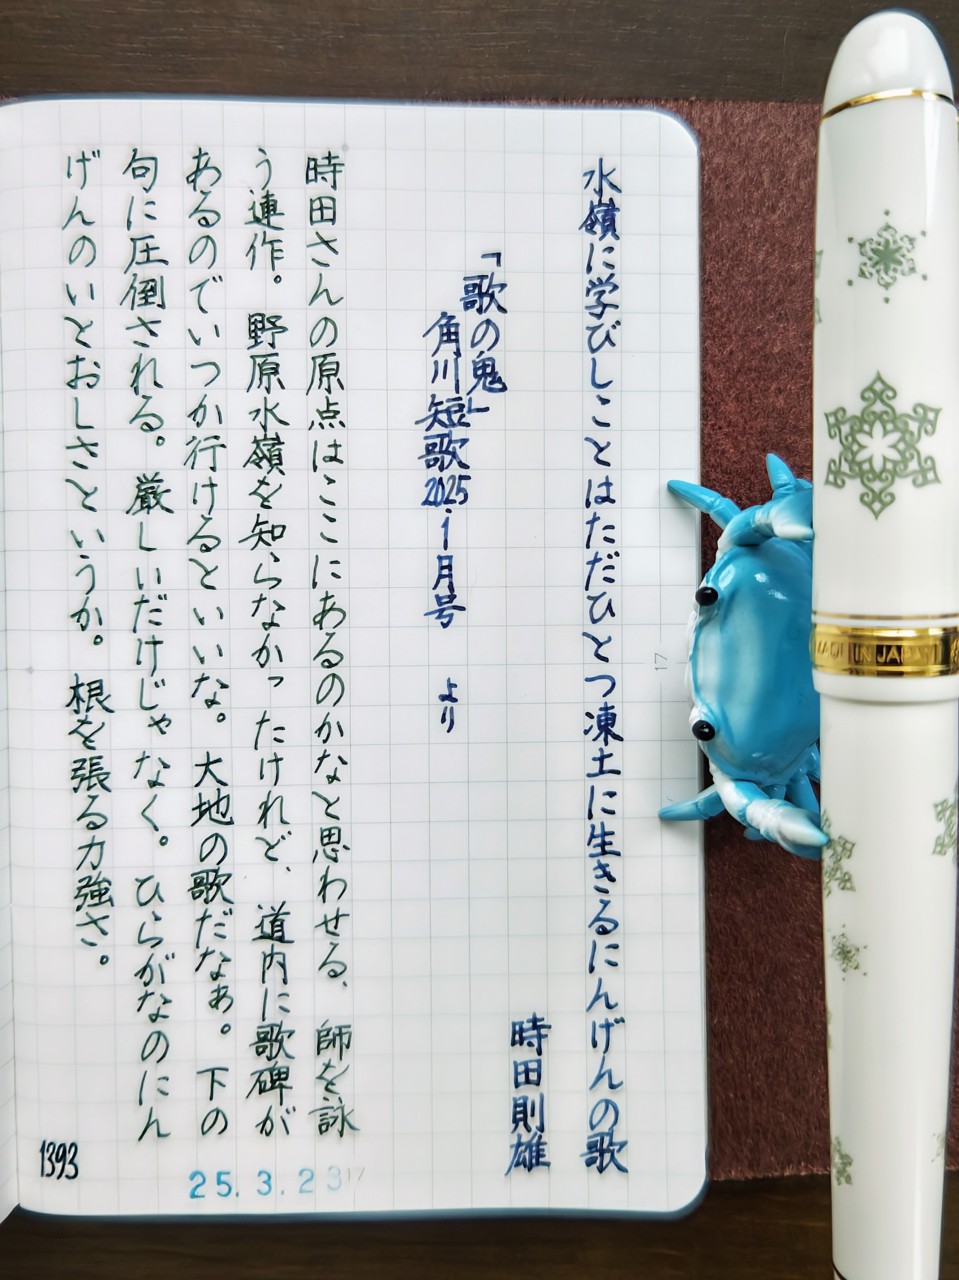 水嶺に学びしことはただひとつ凍土に生きるにんげんの歌
時田則雄
「歌の鬼」
角川短歌2025.1月号 より
時田さんの原点はここにあるのかなと思わせる、師を詠
う連作。野原水嶺を知らなかったけれど、道内に歌碑が
あるのでいつか行けるといいな。大地の歌だなぁ。下の
句に圧倒される。厳しいだけじゃなく。ひらがなのにん
げんのいとおしさというか。根を張る力強さ。
1393
25.3.23
17
17
IN JAPAN